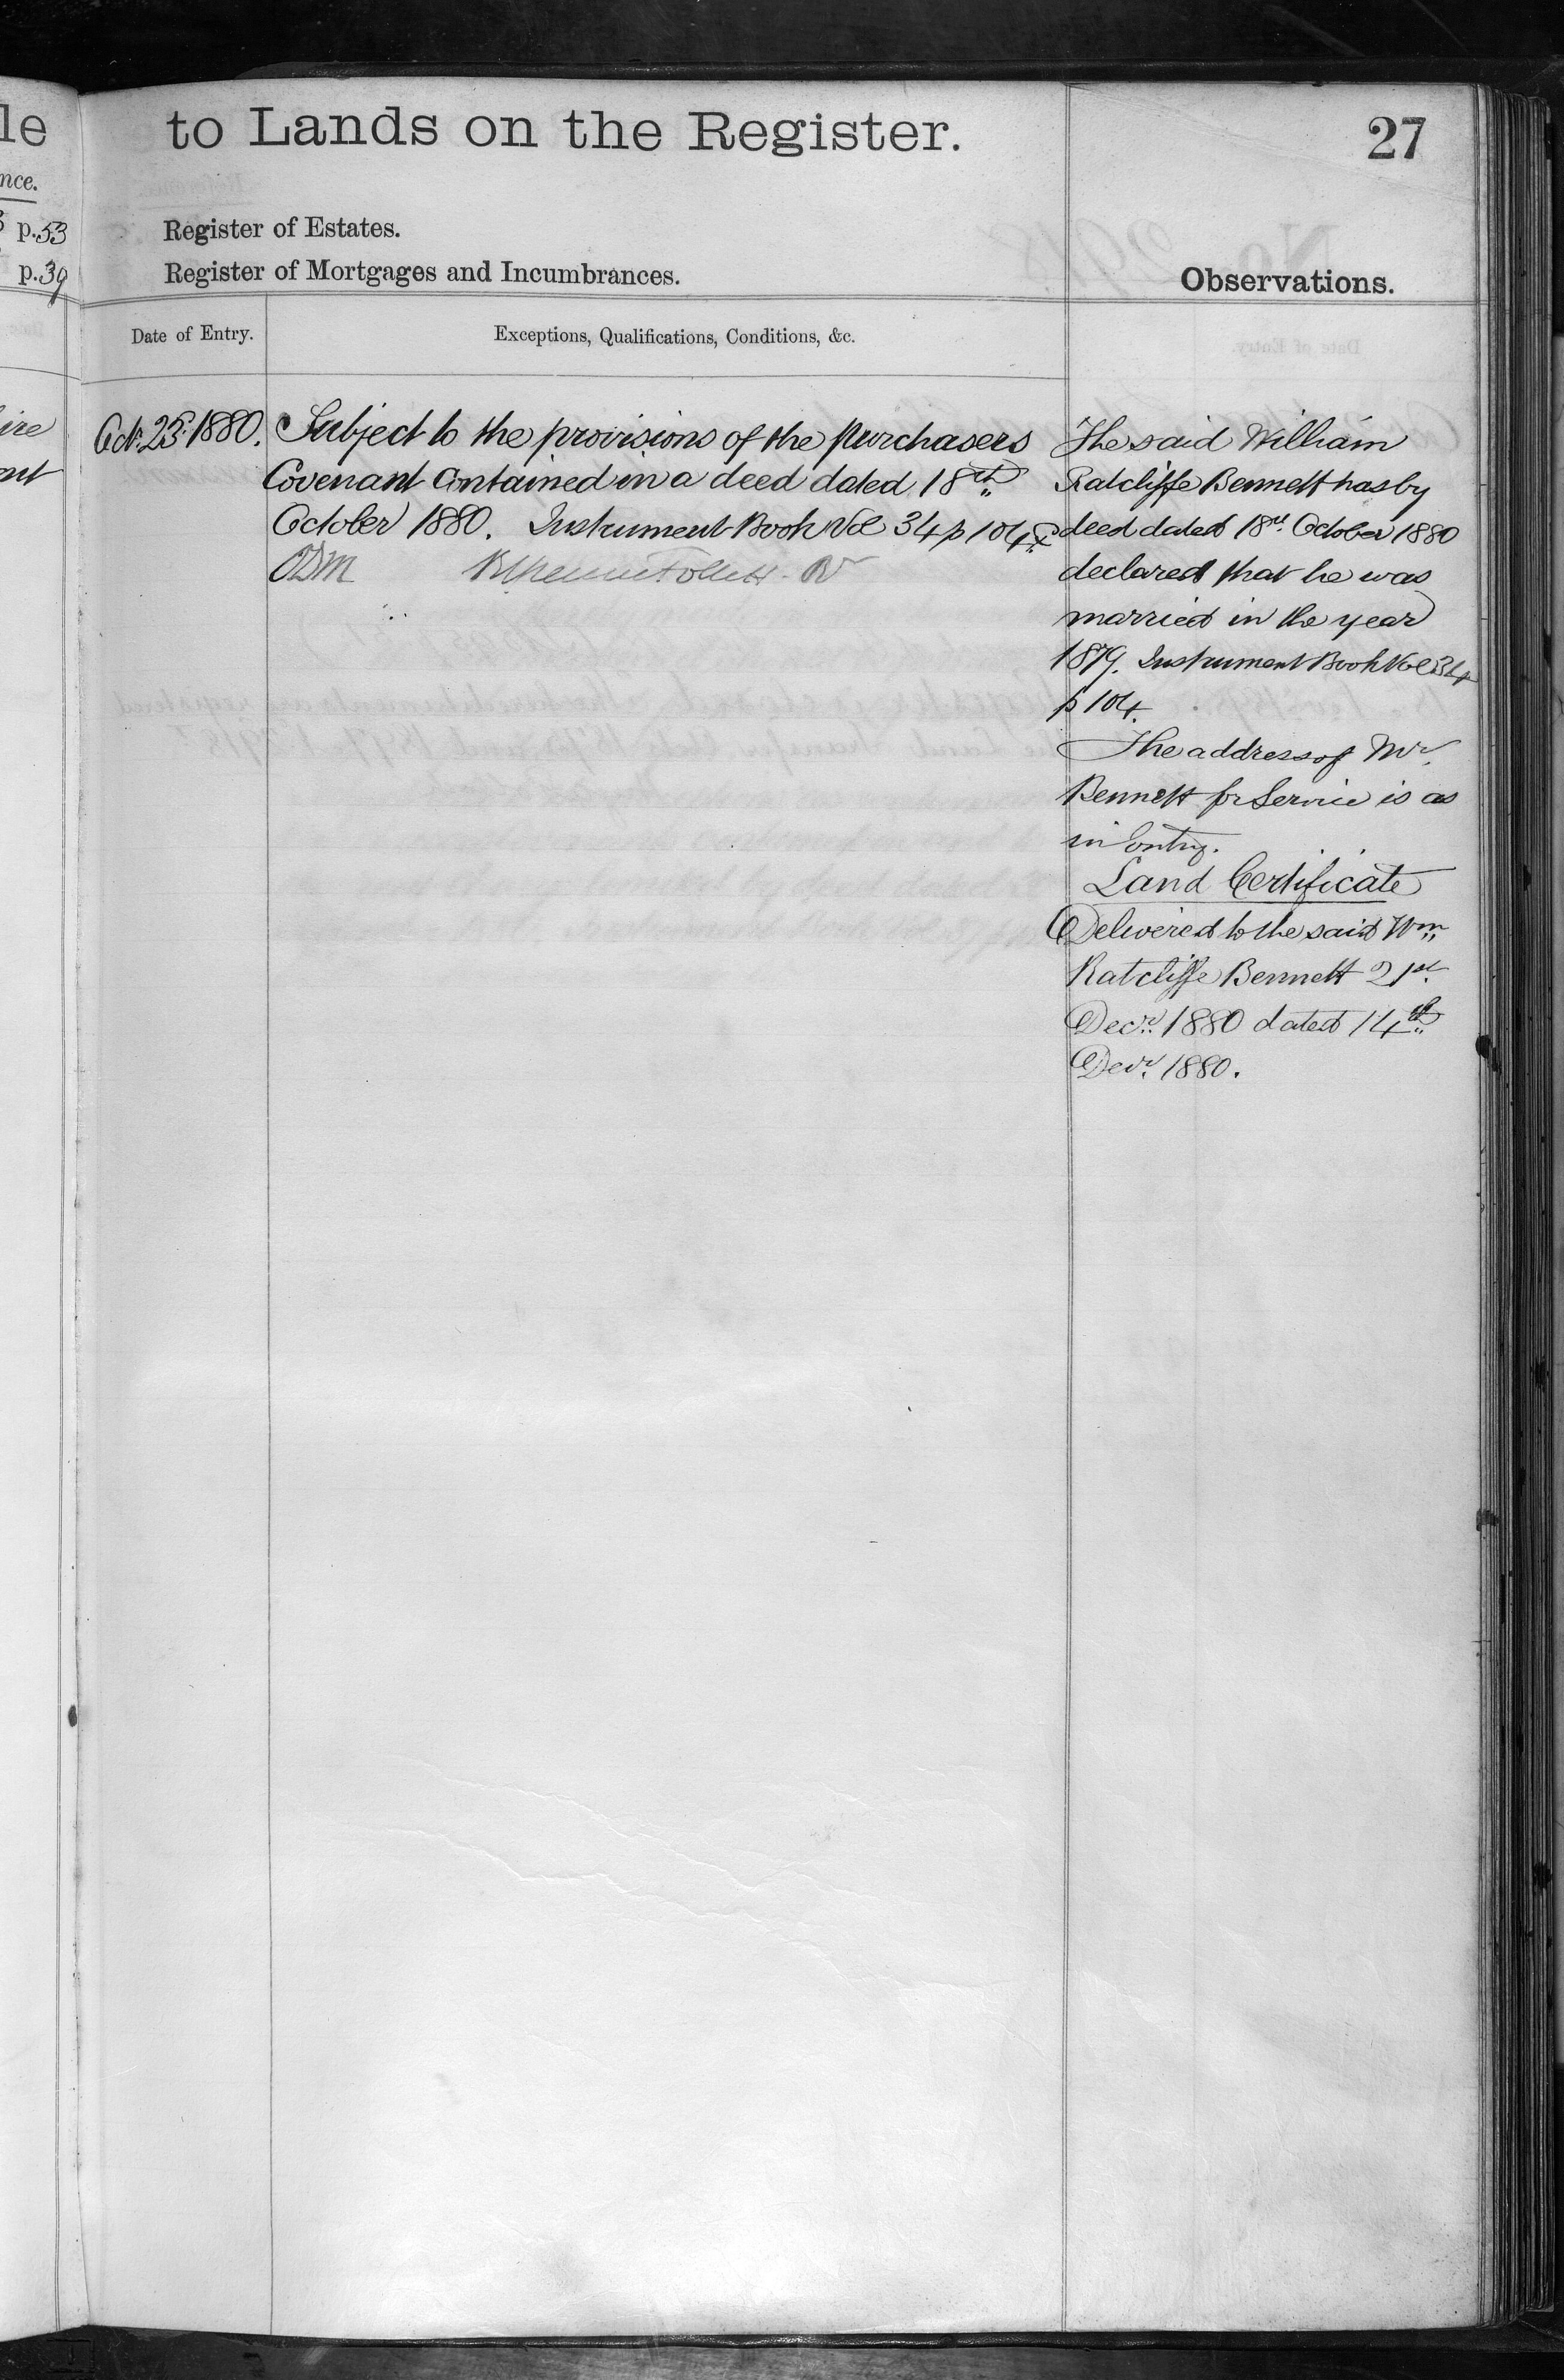 le
nce.
p.53
p.39
ire
to Lands on the Register.
27
Register of Estates.
Register of Mortgages and Incumbrances.
Observations.
Date of Entry.
Exceptions, Qualifications, Conditions, &c.
Oct. 25. 1880.
Subject to the provisions of the purchasers
Covenant contained in a deed dated 18th
October 1880. Instrument Book Vol 34 p 104
The said William
Ratcliffe Bennett has by
deed dated 18th October 1880
declared that he was
married in the year
1879. Instrument Book Vol 34
p 104.
The address of Mr.
Bennett for Service is as
in Entry.
Land Certificate
Delivered to the said Wm
Ratcliffe Bennett 21st
Decr. 1880 dated 14th
Decr. 1880.